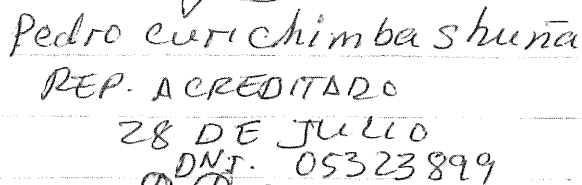 Pedro curichimba shuña
REP. ACREDITADO
28 DE JULIO
DNI. 05323899